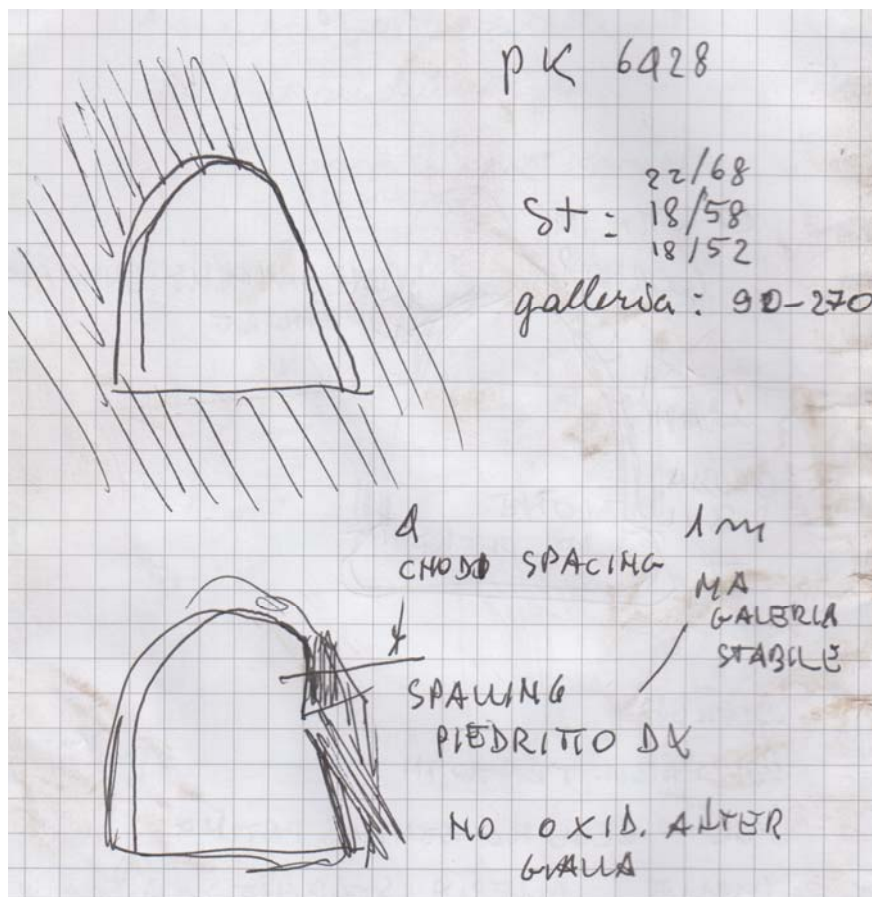 PK 6428
22/68
St: 18/58
18/52
galleria: 90-270
1 m
CHODO SPACING
MA
GALERIA
STABILE
SPALLING
PIEDRITTO DX
NO OXID. ALTER
GIALLA